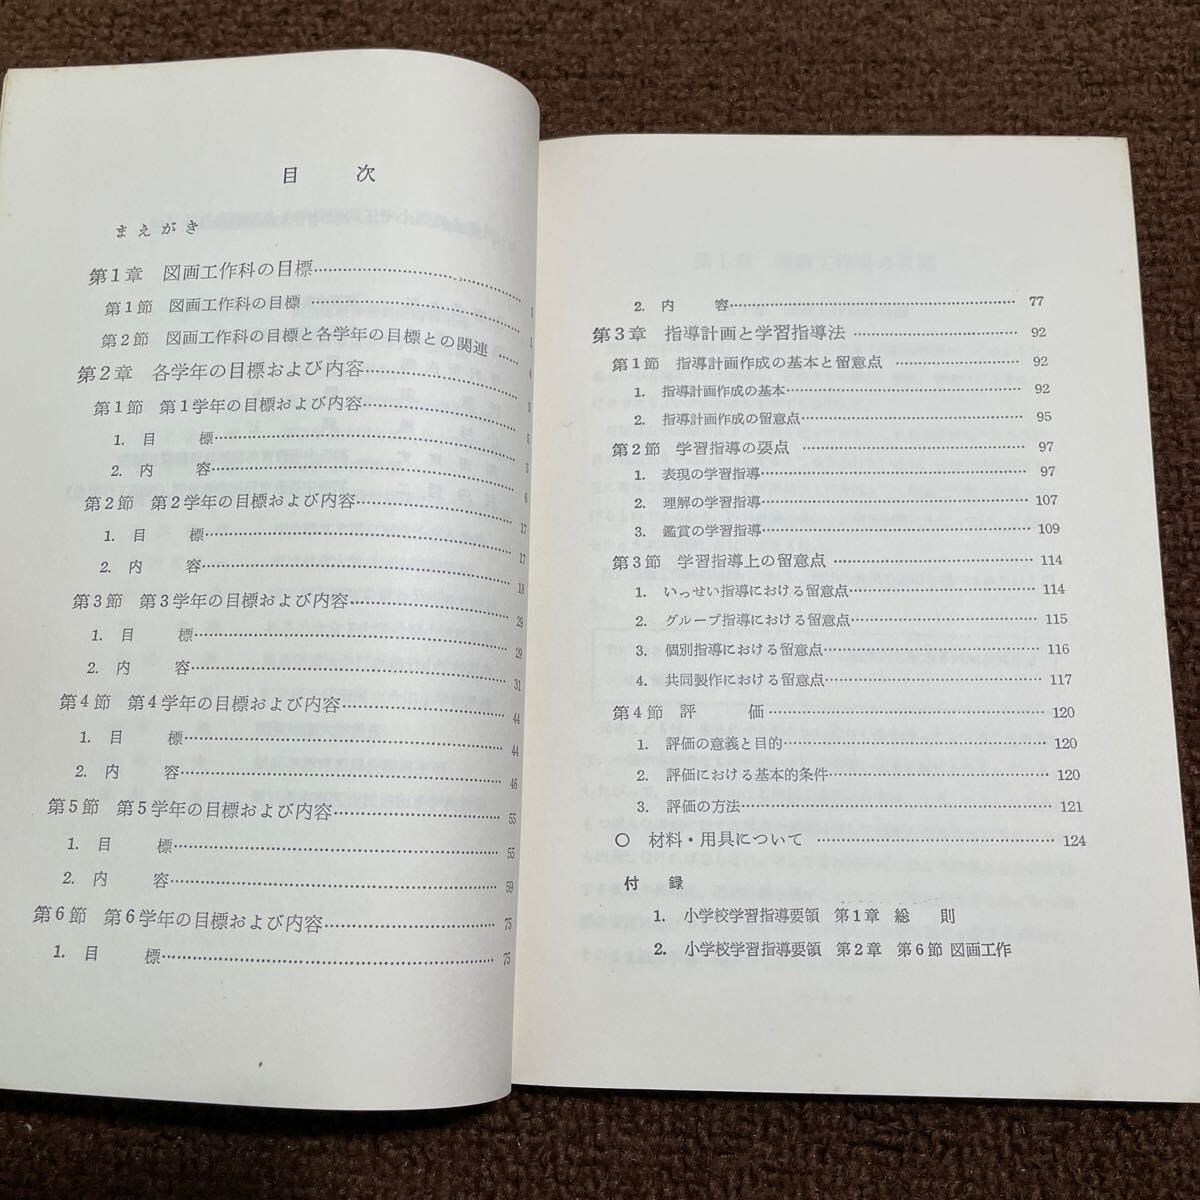 目　次
まえがき
第1章　図画工作科の目標…… 1
第1節　図画工作科の目標…… 1
第2節　図画工作科の目標と各学年の目標との関連…… 4
第2章　各学年の目標および内容…… 5
第1節　第1学年の目標および内容……
1. 目　標…… 5
2. 内　容…… 6
第2節　第2学年の目標および内容…… 17
1. 目　標…… 17
2. 内　容…… 18
第3節　第3学年の目標および内容…… 29
1. 目　標…… 29
2. 内　容…… 31
第4節　第4学年の目標および内容…… 44
1. 目　標…… 44
2. 内　容…… 46
第5節　第5学年の目標および内容…… 55
1. 目　標…… 55
2. 内　容…… 59
第6節　第6学年の目標および内容…… 75
1. 目　標…… 75
2. 内　容…… 77
第3章　指導計画と学習指導法…… 92
第1節　指導計画作成の基本と留意点…… 92
1. 指導計画作成の基本…… 92
2. 指導計画作成の留意点…… 95
第2節　学習指導の要点…… 97
1. 表現の学習指導…… 97
2. 理解の学習指導…… 107
3. 鑑賞の学習指導…… 109
第3節　学習指導上の留意点…… 114
1. いっせい指導における留意点…… 114
2. グループ指導における留意点…… 115
3. 個別指導における留意点…… 116
4. 共同製作における留意点…… 117
第4節　評　価…… 120
1. 評価の意義と目的…… 120
2. 評価における基本的条件…… 120
3. 評価の方法…… 121
○　材料・用具について…… 124
付　録
1. 小学校学習指導要領　第1章　総　則
2. 小学校学習指導要領　第2章　第6節　図画工作